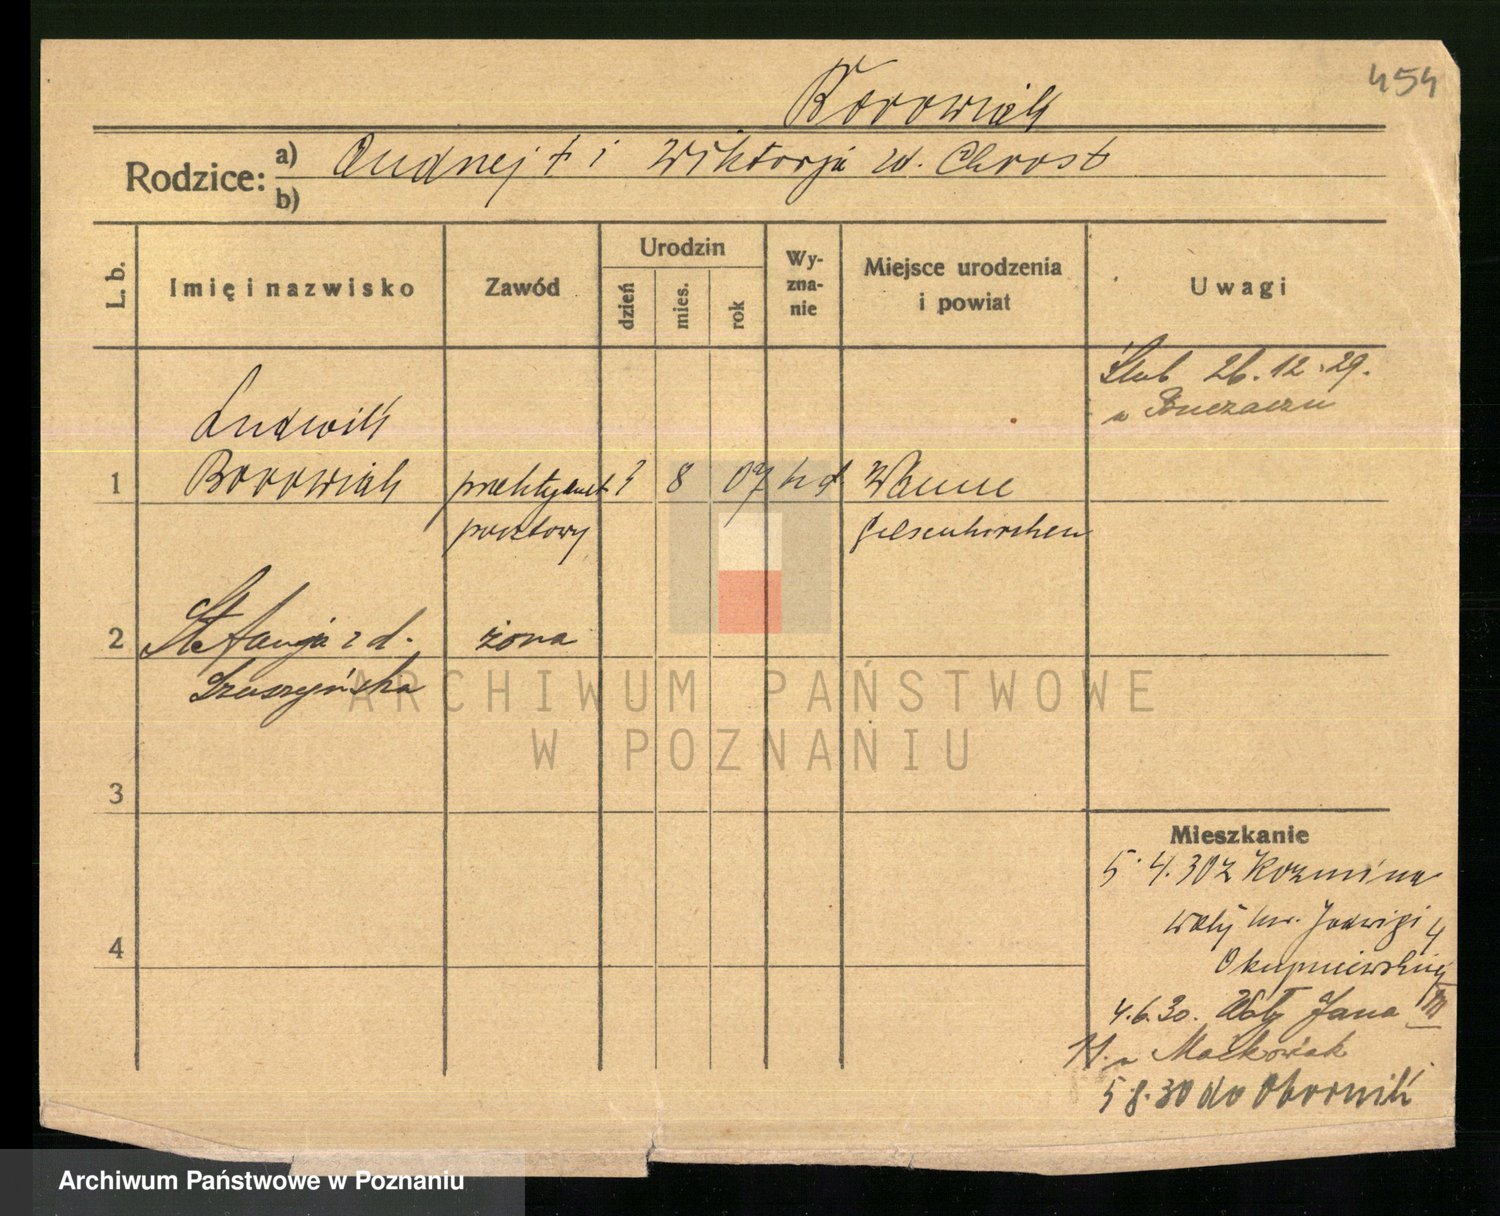 454
Borowiak
Rodzice: a) Andrzej † i Wiktorja zd. Chrost
b)
L. b. Imię i nazwisko Zawód Urodzin dzień mies. rok Wy-zna-nie Miejsce urodzenia i powiat Uwagi
Ślub 26.12.29.
w
Ludwik
1 Borowiak praktykant 3 8 07 kat Wanne
pocztowy Gelsenkirchen
2 Stefanja z d. żona
Szuszyńska
ARCHIWUM PAŃSTWOWE
W POZNANIU
3
Mieszkanie
5.4.30 z Kozmina
Wały kr. Jadwigi 4
4 Okupniewskiej
4.6.30. Wały Jana III
11. u Maćkowiak
5.8.30 do Obornik
Archiwum Państwowe w Poznaniu